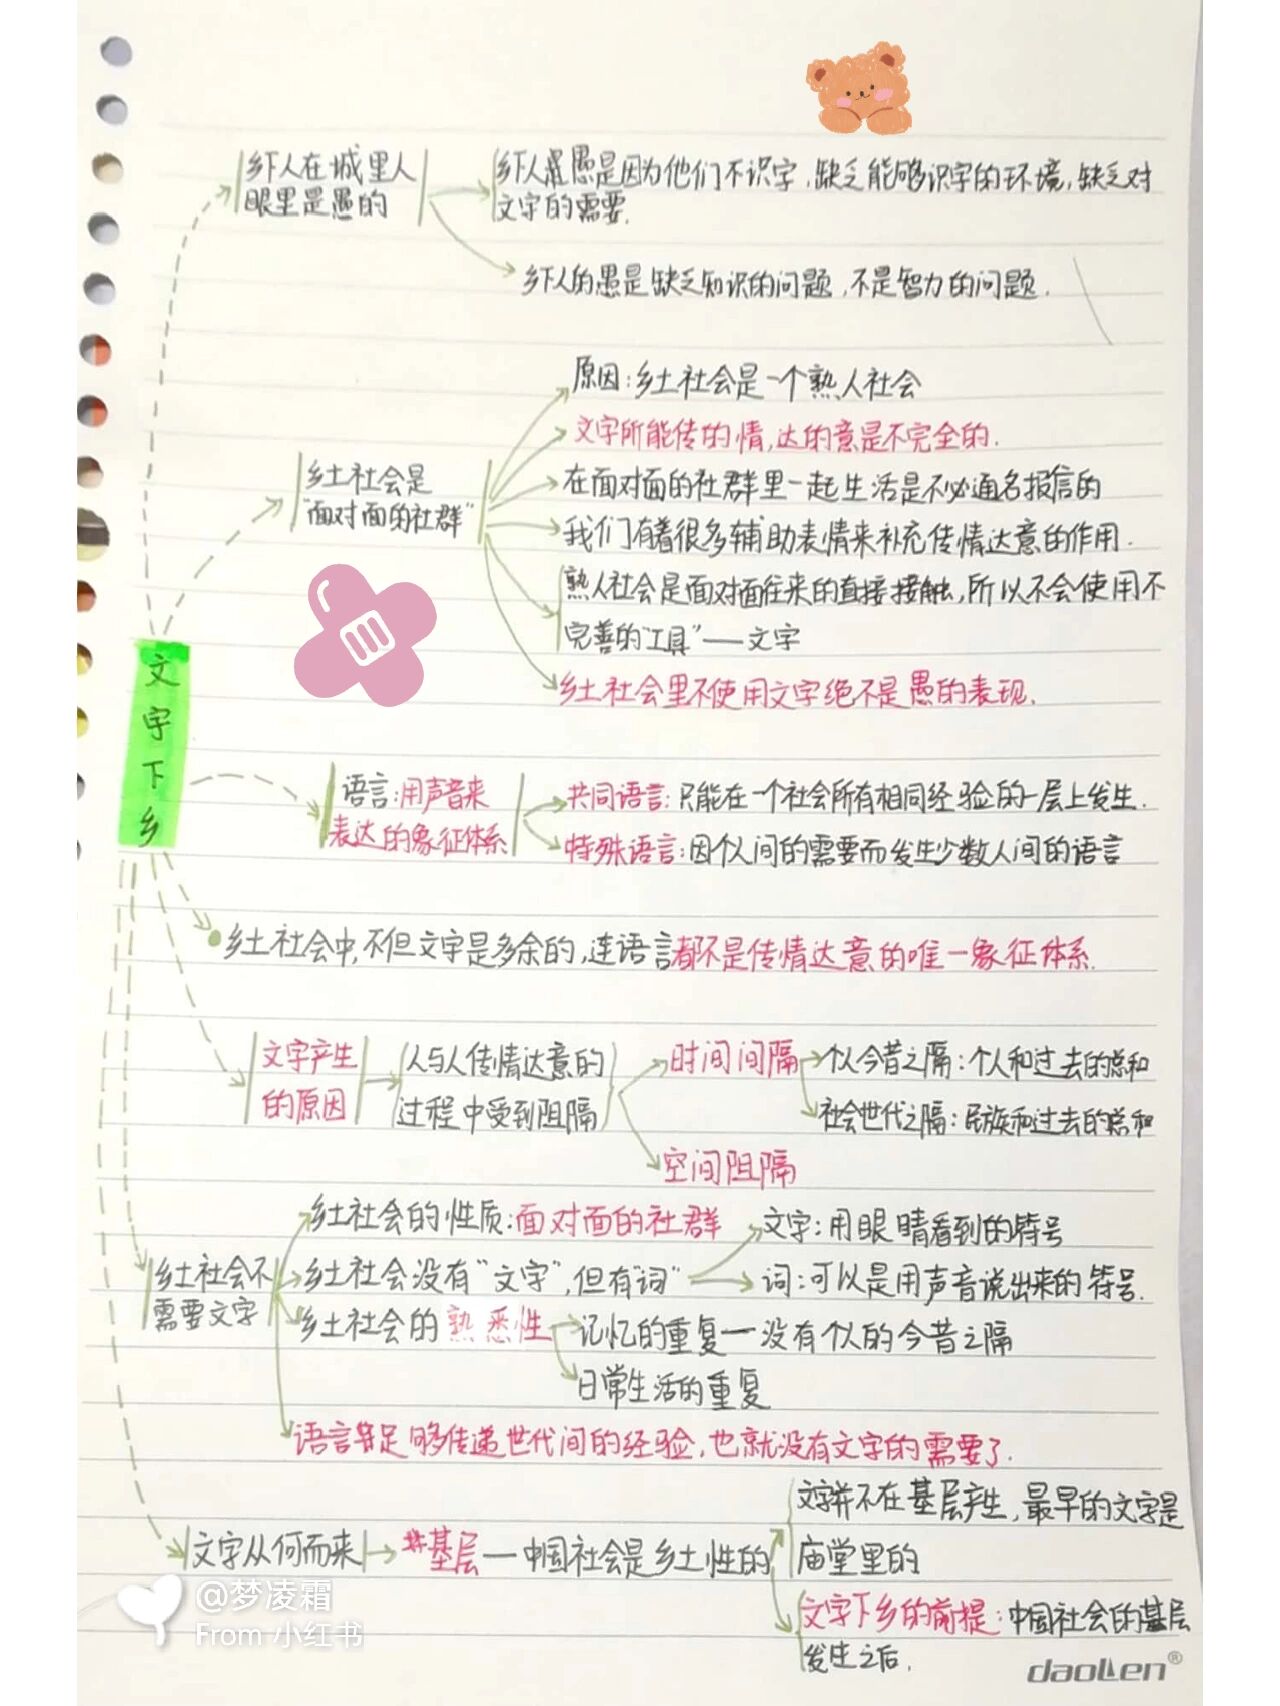 乡下人在城里人
眼里是愚的
乡下人是愚是因为他们不识字，缺乏能够识字的环境，缺乏对
文字的需要.
乡下人的愚是缺乏知识的问题，不是智力的问题.
原因：乡土社会是一个熟人社会
文字所能传的情，达的意是不完全的.
乡土社会是
"面对面的社群"
在面对面的社群里一起生活是不必通名报信的
我们有着很多辅助表情来补充传情达意的作用.
熟人社会是面对面往来的直接接触，所以不会使用不
完善的"工具"——文字
乡土社会里不使用文字绝不是愚的表现.
文字下乡
语言：用声音来
表达的象征体系
共同语言：只能在一个社会所有相同经验的一层上发生.
特殊语言：因个人间的需要而发生少数人间的语言
乡土社会中，不但文字是多余的，连语言都不是传情达意的唯一象征体系.
文字产生
的原因
人与人传情达意的
过程中受到阻隔
时间间隔
个人今昔之隔：个人和过去的总和
社会世代之隔：民族和过去的总和
空间阻隔
乡土社会不
需要文字
乡土社会的性质：面对面的社群
乡土社会没有"文字"，但有"词"
文字：用眼睛看到的符号
词：可以是用声音说出来的符号.
乡土社会的熟悉性
记忆的重复—没有个人的今昔之隔
日常生活的重复
语言若足够传递世代间的经验，也就没有文字的需要了.
文字从何而来
非基层—中国社会是乡土性的
文字并不在基层产生，最早的文字是
庙堂里的
文字下乡的前提：中国社会的基层
发生之后.
@梦凌霜
From 小红书
daolen®